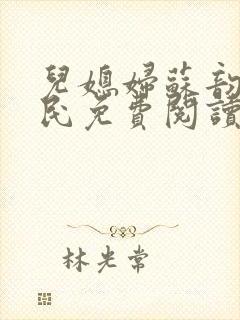 兒媳婦蘇韵
民免費閱讀
林光常